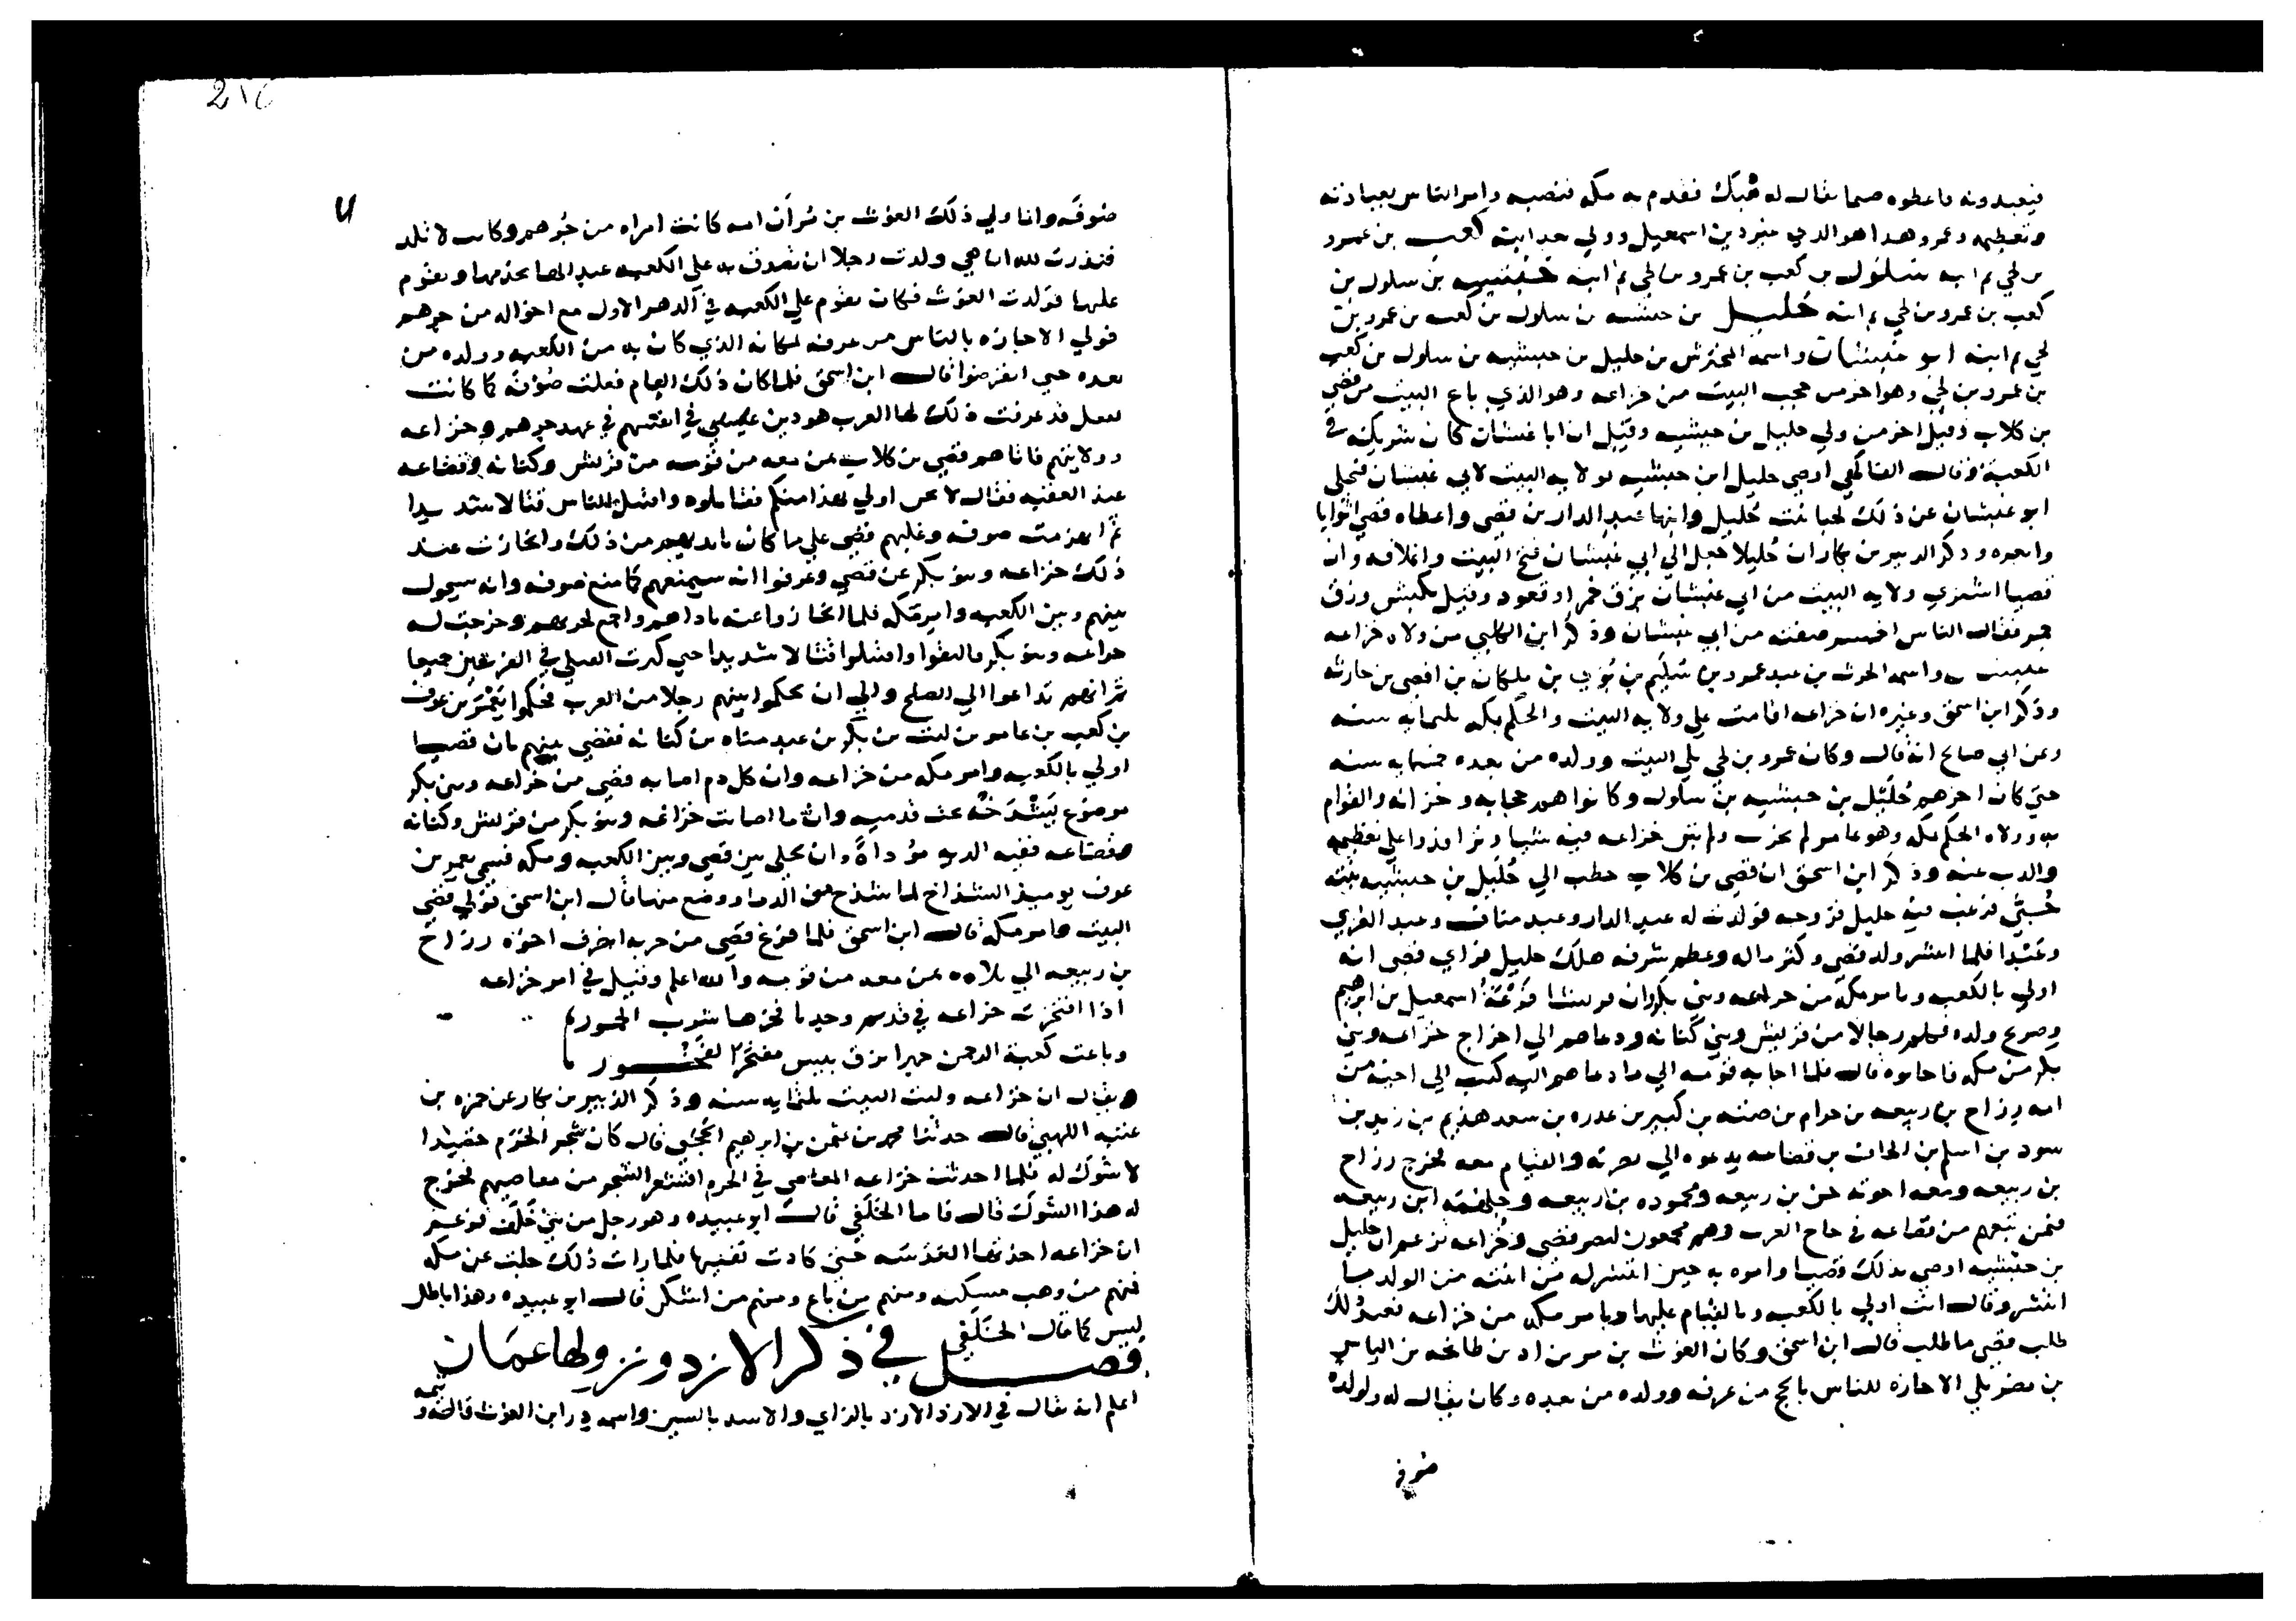 فيعبدونه فاعطوه صنما يقال له هُبَل فقدم به مكه فنصبه وامر الناس بعبادته
وتعظيمه وعمرو هذا هو الذي غير دين اسمعيل وولي بعد ابنه كعب بن عمرو
بن لحي ثم ابنه سلول بن كعب بن عمرو بن لحي ثم ابنه حبشيه بن سلول بن
كعب بن عمرو بن لحي ثم ابنه حُليل بن حبشيه بن سلول بن كعب بن عمرو بن
لحي ثم ابنه ابو غبشان واسمه المحترش بن حليل بن حبشيه بن سلول بن كعب
بن عمرو بن لحي وهو اخر من حجب البيت من خزاعه وهو الذي باع البيت من قصي
بن كلاب وقيل اخر من ولي حليل بن حبشيه وقيل ان ابا غبشان كان شريكه في
الكعبة وقال الفاكهي اوصى حليل ابن حبشيه بولايه البيت لابي غبشان فتخلى
ابو غبشان عن ذلك لحبا بنت حُليل وابنها عبد الدار بن قصي واعطاه قصي اثوابا
وابعره وذكر الزبير بن بكار ان حُليلا جعل الي ابي غبشان فتح البيت واغلاقه وان
قصيا اشتري ولايه البيت من ابي غبشان بزق خمر او قعود وقيل بكبش وزق
خمر فقال الناس اخسر صفقه من ابي غبشان وذكر ابن الكلبي من ولاه خزاعه
غبشان واسمه الحرث بن عبد عمرو بن سُليم بن بُوي بن ملكان بن افصى بن حارثه
وذكر ابن اسحق وغيره ان خزاعه اقامت علي ولايه البيت والحكم بمكه ثلثمايه سنه
وعن ابي صالح انه قال وكان عمرو بن لحي يلي البيت وولده من بعده خمسمايه سنه
حتي كان اخرهم حُليل بن حبشيه بن سلول وكانوا هم حجابه وخزانه والقوام
به وولاه الحكم بمكه وهو عامر لم يخرب ولم تبن خزاعه فيه شيا ولم تزد على تعظيمه
والذب عنه وذكر ابن اسحق ان قصي بن كلاب خطب الي حُليل بن حبشيه بنته
حُبّي فرغب فيه حليل فزوجه فولدت له عبد الدار وعبد مناف وعبد العزي
وعَبْدا فلما انتشر ولد قصي وكثر ماله وعظم شرفه هلك حليل فراي قصي انه
اولي بالكعبه وبامر مكه من خزاعه وبني بكر وان قريشا قرعة اسمعيل بن ابرهيم
وصريح ولده فكلم رجالا من قريش وبني كنانه ودعاهم الي اخراج خزاعه وبني
بكر من مكه فاجابوه قال فلما اجابه قومه الي ما دعاهم اليه كتب الي اخيه من
امه رزاح بن ربيعه بن حرام بن ضنه بن كبير بن عذره بن سعد هذيم بن زيد بن
سود بن اسلم بن الحاف بن قضاعه يدعوه الي نصرته والقيام معه فخرج رزاح
بن ربيعه ومعه اخوته حن بن ربيعه ومحموده بن ربيعه وجلهمه ابن ربيعه
فيمن تبعهم من قضاعه في حاج العرب وهم مجمعون لنصر قصي وخزاعه تزعم ان حليل
بن حبشيه اوصي بذلك قصيا وامره به حين انتشر له من ابنته من الولد ما
انتشر وقال انت اولي بالكعبه وبالقيام عليها وبامر مكه من خزاعه فعند ذلك
طلب قصي ما طلب قال ابن اسحق وكان الغوث بن مر بن اد بن طابخه بن الياس
بن مضر يلي الاجازه للناس بالحج من عرفه وولده من بعده وكان يقال له ولولده
صوفه
صُوفَه وانما ولي ذلك الغوث بن مر ان امه كانت امراه من جُرهم وكانت لا تلد
فنذرت لله ان هي ولدت رجلا ان تصدق به على الكعبه عبدا لها يخدمها ويقوم
عليها فولدت الغوث فكان يقوم علي الكعبه في الدهر الاول مع اخواله من جرهم
فولي الاجازه بالناس من عرفه لمكانه الذي كان به من الكعبه وولده من
بعده حتى انقرضوا قال ابن اسحق فلما كان ذلك العام فعلت صُوْفَه كما كانت
تفعل قد عرفت ذلك لها العرب هو دين في انفسهم في عهد جرهم وخزاعه
وولايتهم فاتاهم قصي بن كلاب بمن معه من قومه من قريش وكنانه وقضاعه
عند العقبه فقال لا نحن اولي بهذا منكم فقاتلوه واقتتل الناس قتالا شديدا
ثم انهزمت صوفه وغلبهم قصي علي ما كان بايديهم من ذلك وانحازت عند
ذلك خزاعه وبنو بكر عن قصي وعرفوا انه سيمنعهم كما منع صوفه وانه سيحول
بينهم وبين الكعبه وامر مكه فلما انحازوا عنه باداهم واجمع لحربهم وخرجت له
خزاعه وبنو بكر فالتقوا واقتتلوا قتالا شديدا حتى كثرت القتلى في الفريقين جميعا
ثم انهم تداعوا الي الصلح والي ان يحكموا بينهم رجلا من العرب فحكموا يَعْمُر بن عوف
بن كعب بن عامر بن ليث بن بكر بن عبد مناه بن كنانه فقضى بينهم بان قصيا
اولي بالكعبه وامر مكه من خزاعه وان كل دم اصابه قصي من خزاعه وبني بكر
موضوع يَشْدَخُه تحت قدميه وان ما اصابت خزاعه وبنو بكر من قريش وكنانه
وقضاعه ففيه الديه مؤداةً وان يخلي بين قصي وبين الكعبه ومكه فسمي يعمر بن
عوف يوميذ الشداخ لما شدخ من الدما ووضع منها قال ابن اسحق فولي قصي
البيت وامر مكه قال ابن اسحق فلما فرغ قصي من حربه انصرف اخوه رزاح
بن ربيعه الي بلاده بمن معه من قومه والله اعلم وقيل في امر خزاعه
اذا افتخرت خزاعه في قديم وجدنا فخرها شرب الخمور
وباعت كعبة الرحمن جهرا بزق بيس مفتخر الفَخُور
ويقال ان خزاعه وليت البيت ثلثمايه سنه وذكر الزبير بن بكار عن حمزه بن
عتبه اللهبي قال حدثنا محمد بن عثمن بن ابرهيم الحجبي قال كان شجر الحرم خضيدا
لا شوك له فلما احدثت خزاعه المعاصي في الحرم اقشعر الشجر من معاصيهم فخرج
له هذا الشوك قال فاما الخلفي قال ابو عبيده وهو رجل من بني خَلَف فزعم
ان خزاعه اخذتها العدسه حتى كادت تفنيها فلما رات ذلك جلت عن مكه
فمنهم من وهب مسكنه ومنهم من باع ومنهم من اسكن قال ابو عبيده وهذا باطل
ليس كما قال الخَلَفي
فصل في ذكر الازد ونزولها عمَان
اعلم انه يقال في الازد الازد بالزاي والاسد بالسين واسمه درا ابن الغوث